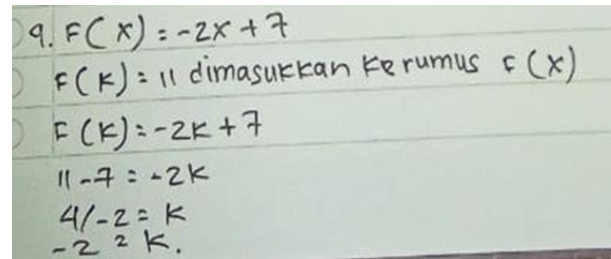 9. F(x) = -2x + 7
F(K) = 11 dimasukkan ke rumus F(x)
F(K) = -2K + 7
11 - 7 = -2K
4/-2 = K
-2 = K.